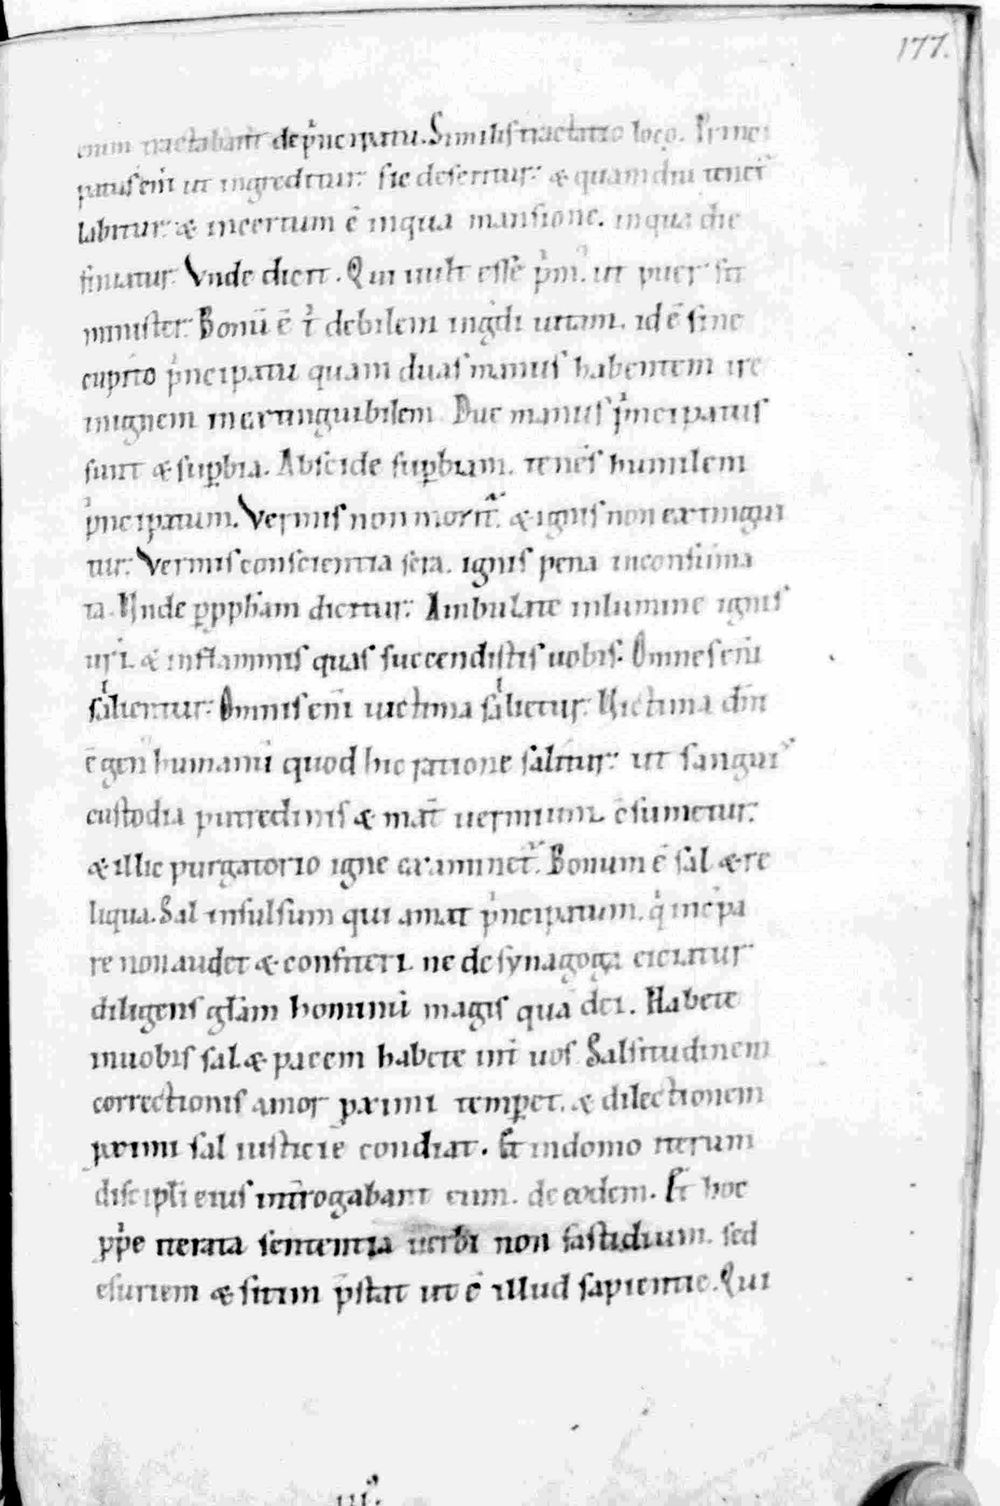 177.
enim tractabant de pͥncipatu. Similis tractatio loco. Princi
patus eni̅ ut ingreditur: sic deseritur: & quamdiu tenet᷑
labitur: & incertum e̅ inqua mansione. inqua die
finiatur. Vnde dicit. Qui uult esse pͥm᷒. ut puer sit
minister. Bonu̅ e̅ tͥ debilem ingͣdi uitam. id e̅ sine
cupito pͥncipatu quam duas manus habentem ire
inignem inextinguibilem. Due manus pͥncipatus
sunt & sup̱bia. Abscide sup̱biam. tenes humilem
pͥncipatum. Vermis non morit᷑. & ignis non extingui
tur: Vermis conscientia sera. ignis pena inconsuma
ta. Unde p̱pph̅am dicitur: Ambulate inlumine ignis
uri. & inflammis quas succendistis uobis. Omnes eni̅
salientur: Omnis eni̅ uictima salietur. Uictima dn̅i
e̅ gen᷒ humanu̅ quod hic ratione salitur: ut sangui᷒
custodia putredinis & mat̅ uermium. c̅sumetur:
& illic purgatorio igne examinet᷑. Bonum e̅ sal & re
liqua. Sal insulsum qui amat pͥncipatum. qͥ increpa
re non audet & confiteri. ne de synagoga eiciatur
diligens gl̅am hominu̅ magis qua̅ dei. Habete
inuobis sal & pacem habete int̅ uos. Salsitudinem
correctionis amor p̱ximi temp̱et. & dilectionem
p̱ximi sal iusticie condiat. Et indomo iterum
discipli̅ eius int̅rogabant eum. de eodem. Et hoc
p̱pͥe iterata sententia uerbi non fastidium. sed
esuriem & sitim p̅stat ut e̅ illud sapientie. Qui